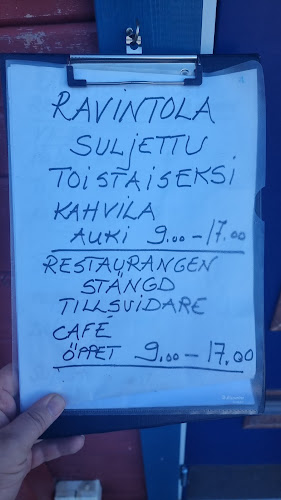 RAVINTOLA
SULJETTU
TOISTAISEKSI
KAHVILA
AUKI 9.00 – 17.00
RESTAURANGEN
STÄNGD
TILLSVIDARE
CAFÉ
ÖPPET 9.00 – 17.00